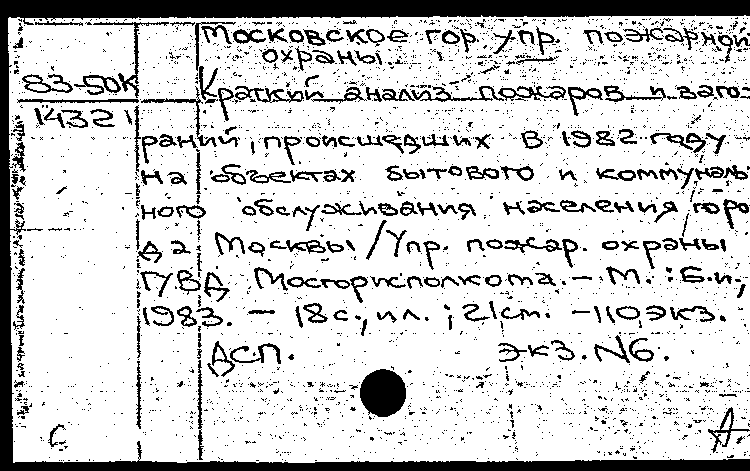 Московское гор. упр. пожарной
охраны.
83-50К
Краткий анализ пожаров и заго-
14321
раний, происшедших в 1982 году
на объектах бытового и коммуналь
ного обслуживания населения горо
да Москвы / Упр. пожар. охраны
ГУВД Мосгорисполкома. - М. : Б.и.,
1983. - 18 с., ил. ; 21 см. - 110 экз.
ДСП. экз. N6.
С А